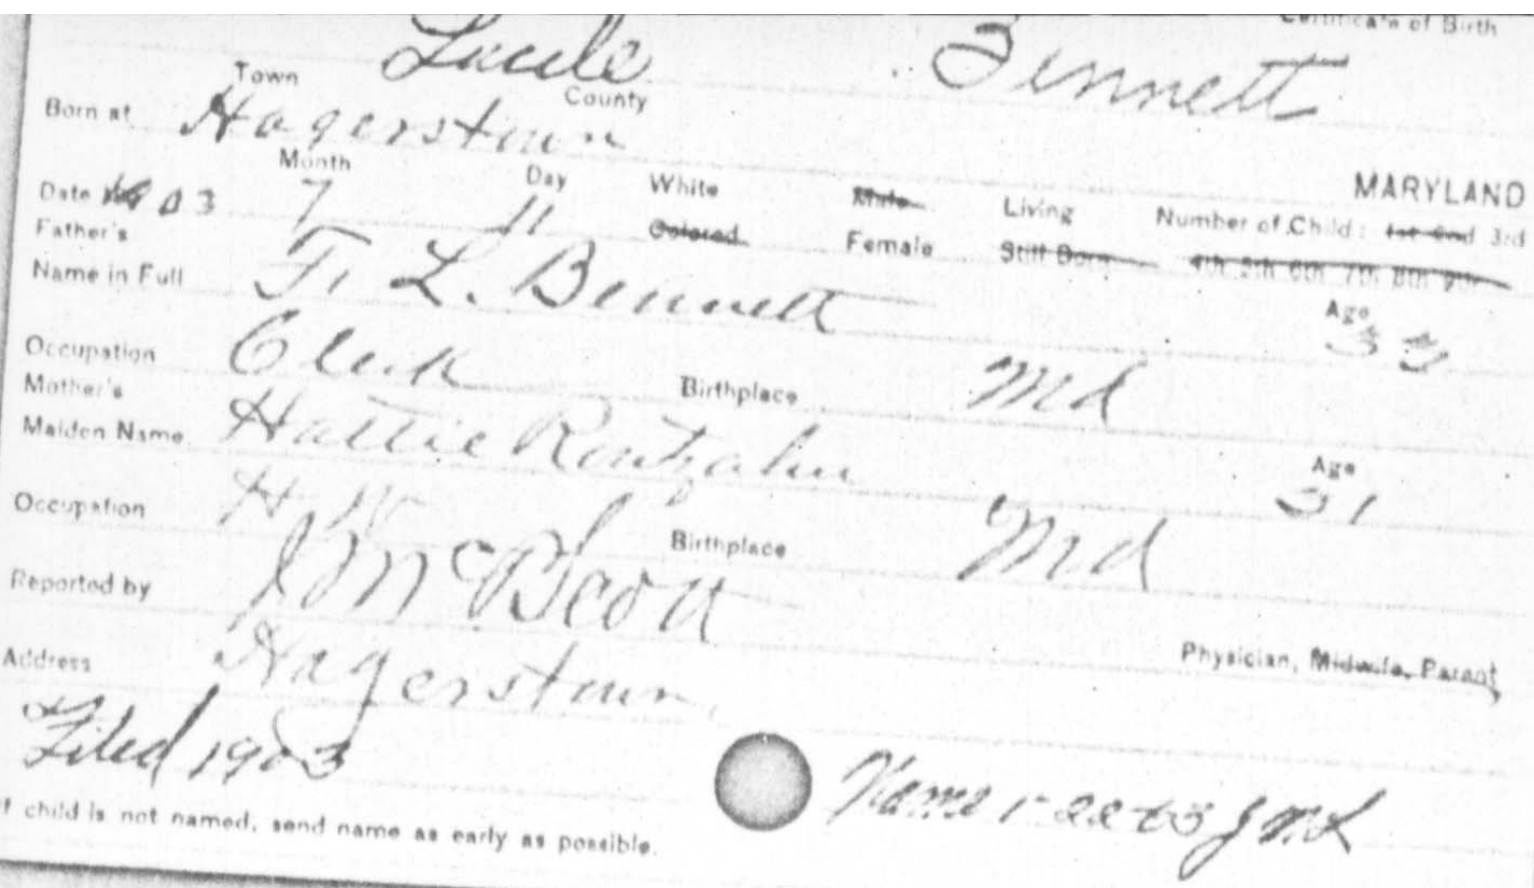 Certificate of Birth
Lucile Bennett
Town County
Born at Hagerstown
MARYLAND
Month Day White Male Living Number of Child: 1st 2nd 3rd
Date 1903 7 11 Colored Female Still Born 4th 5th 6th 7th 8th 9th
Father's
Name in Full T. L. Bennett Age 33
Occupation Clerk Birthplace Md
Mother's
Maiden Name Hattie Routzahn Age 31
Occupation H. W. Birthplace Md
Reported by J McP Scott
Physician, Midwife, Parent
Address Hagerstown
Filed 1903
Name 1-22-63
If child is not named, send name as early as possible.